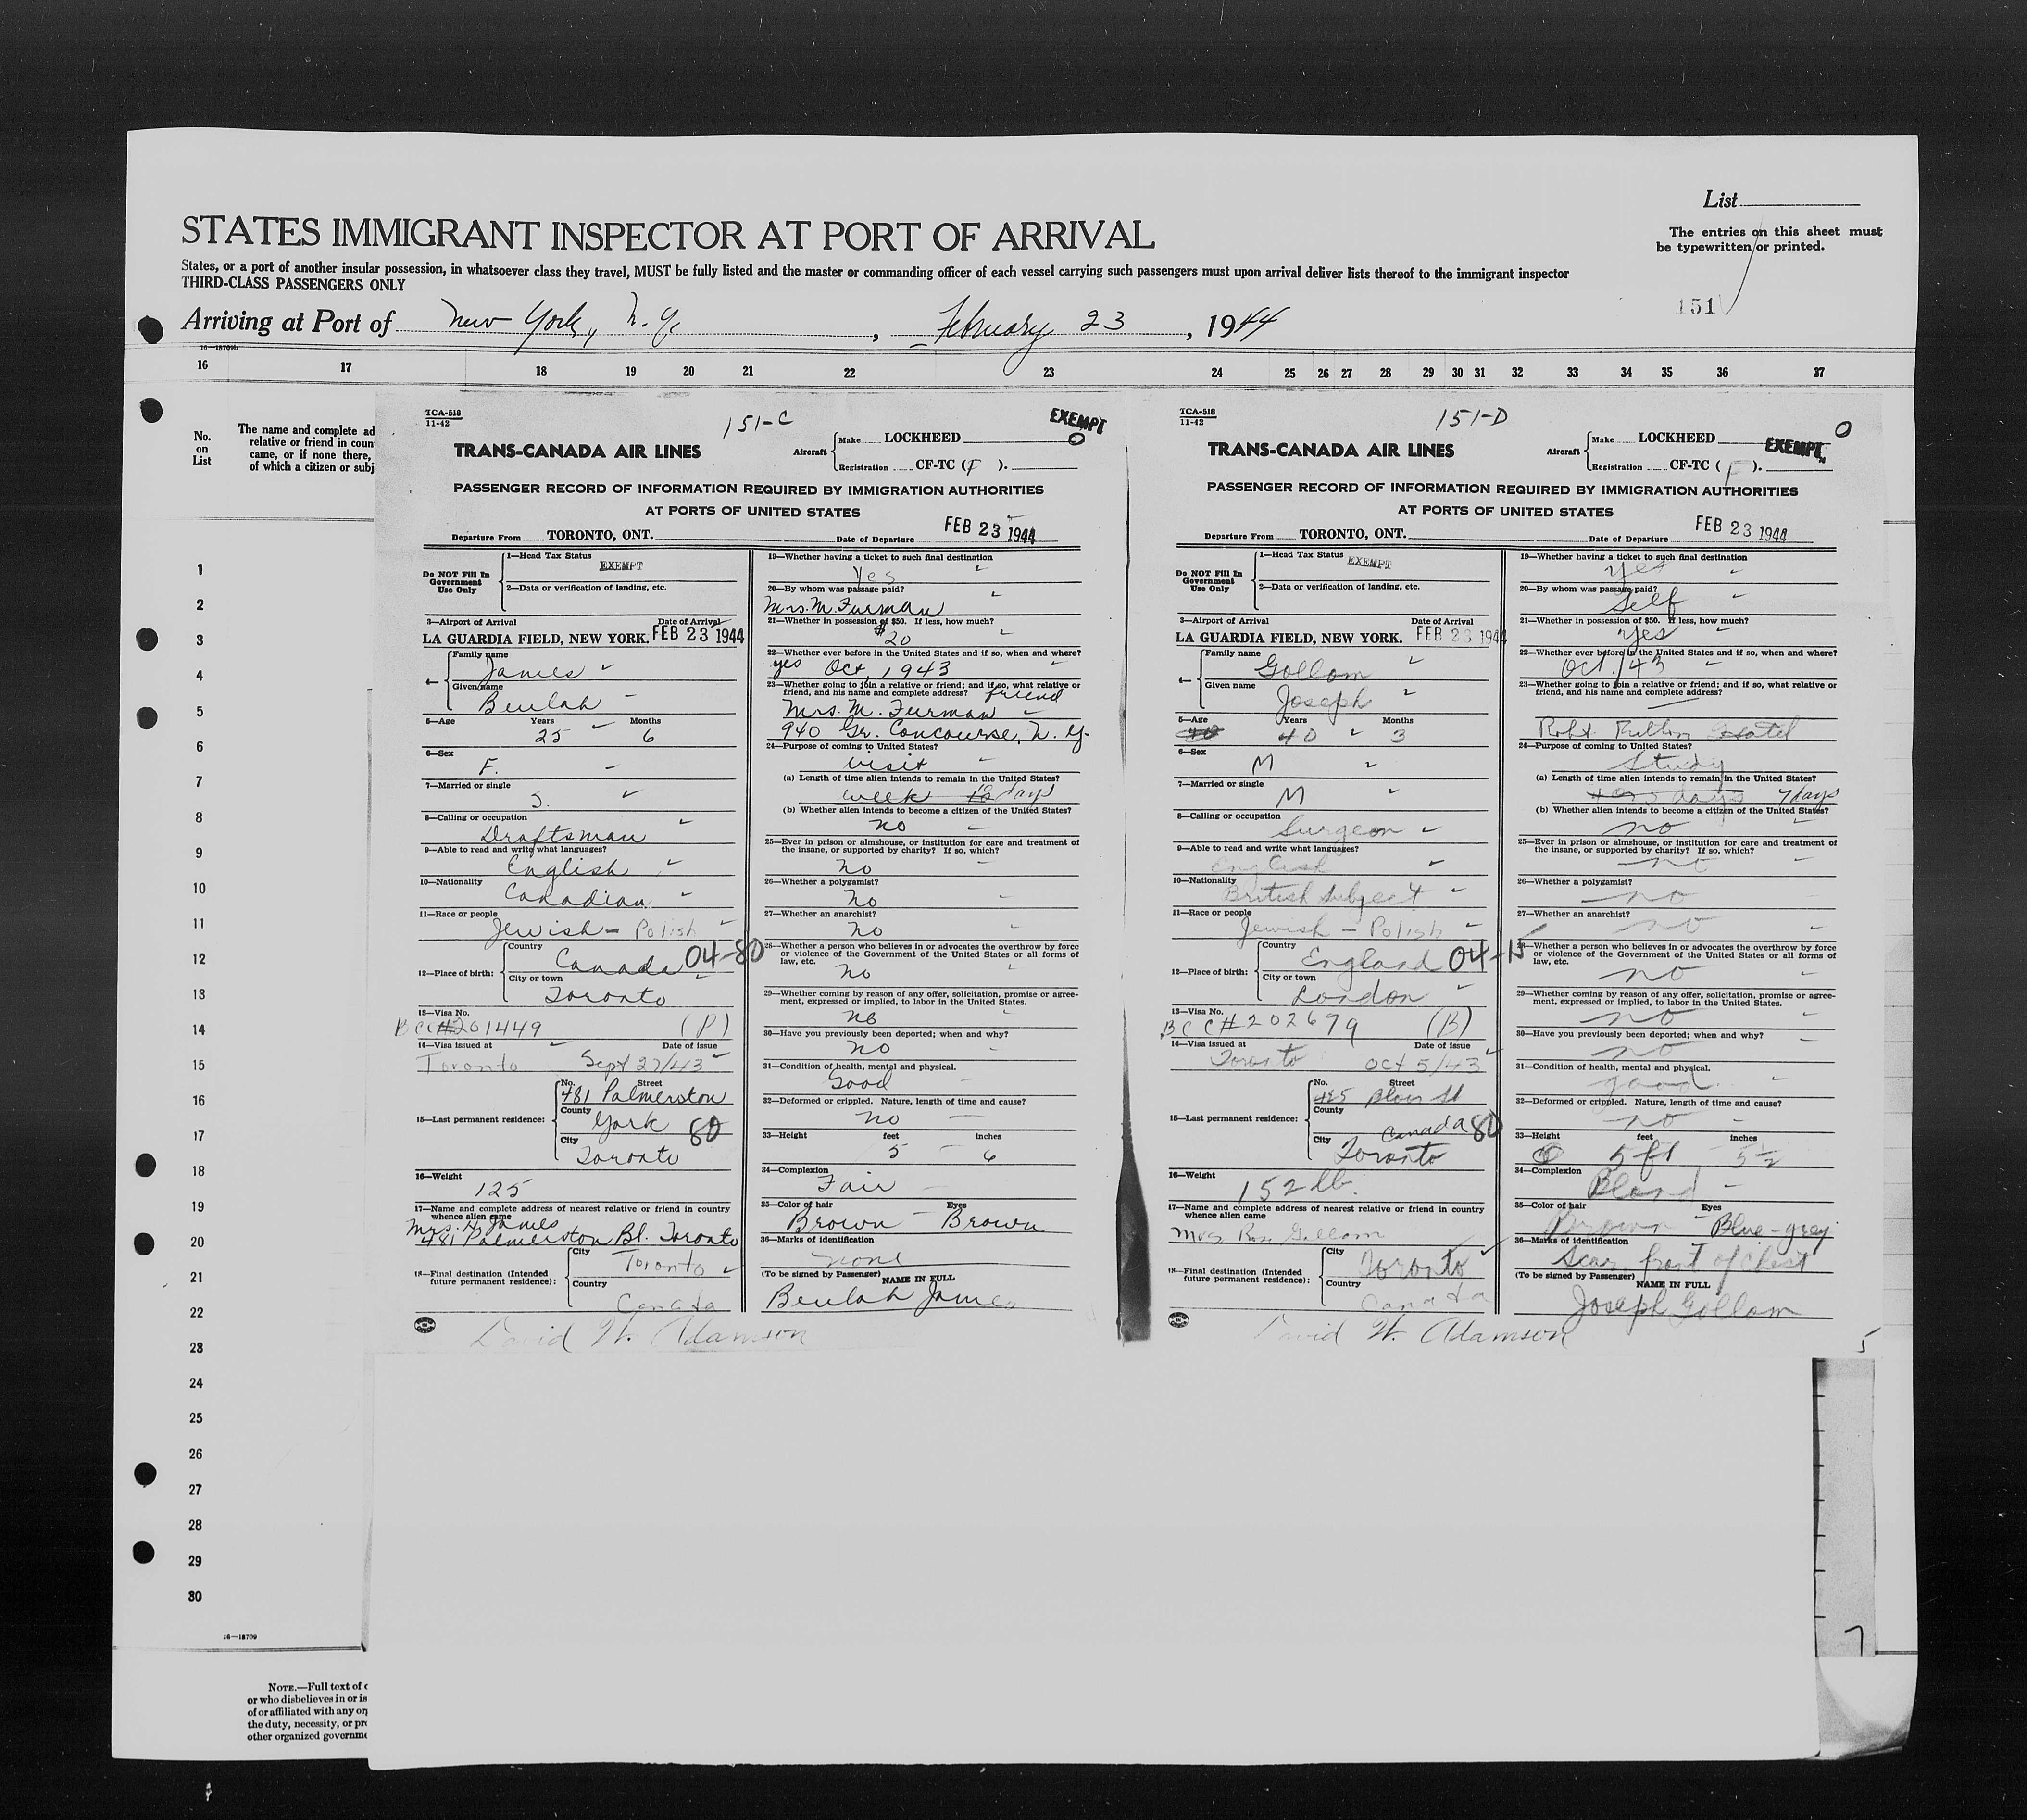 List
STATES IMMIGRANT INSPECTOR AT PORT OF ARRIVAL
The entries on this sheet must
be typewritten or printed.
States, or a port of another insular possession, in whatsoever class they travel, MUST be fully listed and the master or commanding officer of each vessel carrying such passengers must upon arrival deliver lists thereof to the immigrant inspector
THIRD-CLASS PASSENGERS ONLY
151
Arriving at Port of New York, N.Y. , February 23, 1944
16—18709b
16 17 18 19 20 21 22 23 24 25 26 27 28 29 30 31 32 33 34 35 36 37
No.
on
List
The name and complete ad
relative or friend in coun
came, or if none there,
of which a citizen or subj
1
2
3
4
5
6
7
8
9
10
11
12
13
14
15
16
17
18
19
20
21
22
23
24
25
26
27
28
29
30
16—18709
NOTE.—Full text of
or who disbelieves in or is
of or affiliated with any or
the duty, necessity, or pro
other organized governme
TCA-518
11-42
151-C
EXEMPT
0
TRANS-CANADA AIR LINES
Aircraft
Make LOCKHEED
Registration CF-TC (F).
PASSENGER RECORD OF INFORMATION REQUIRED BY IMMIGRATION AUTHORITIES
AT PORTS OF UNITED STATES
Departure From TORONTO, ONT. Date of Departure FEB 23 1944
Do NOT Fill In
Government
Use Only
1—Head Tax Status
EXEMPT
2—Data or verification of landing, etc.
3—Airport of Arrival Date of Arrival
LA GUARDIA FIELD, NEW YORK. FEB 23 1944
4—
Family name
James
Given name
Beulah
5—Age Years Months
25 6
6—Sex
F.
7—Married or single
S.
8—Calling or occupation
Draftsman
9—Able to read and write what languages?
English
10—Nationality
Canadian
11—Race or people
Jewish - Polish
12—Place of birth:
Country
Canada 04-80
City or town
Toronto
13—Visa No.
BCC#201449 (P)
14—Visa issued at Date of issue
Toronto Sept 27/43
15—Last permanent residence:
No. Street
481 Palmerston
County
York 80
City
Toronto
16—Weight
125
17—Name and complete address of nearest relative or friend in country
whence alien came
Mrs. H. James
481 Palmerston Bl. Toronto
18—Final destination (Intended
future permanent residence):
City
Toronto
Country
Canada
19—Whether having a ticket to such final destination
Yes
20—By whom was passage paid?
Mrs. M. Furman
21—Whether in possession of $50. If less, how much?
$20
22—Whether ever before in the United States and if so, when and where?
yes Oct, 1943
23—Whether going to join a relative or friend; and if so, what relative or
friend, and his name and complete address? friend
Mrs. M. Furman
940 Gr. Concourse, N.Y.
24—Purpose of coming to United States?
visit
(a) Length of time alien intends to remain in the United States?
week 10 days
(b) Whether alien intends to become a citizen of the United States?
no
25—Ever in prison or almshouse, or institution for care and treatment of
the insane, or supported by charity? If so, which?
no
26—Whether a polygamist?
No
27—Whether an anarchist?
No
28—Whether a person who believes in or advocates the overthrow by force
or violence of the Government of the United States or all forms of
law, etc.
no
29—Whether coming by reason of any offer, solicitation, promise or agree-
ment, expressed or implied, to labor in the United States.
no
30—Have you previously been deported; when and why?
no
31—Condition of health, mental and physical.
Good
32—Deformed or crippled. Nature, length of time and cause?
no
33—Height feet inches
5 6
34—Complexion
Fair
35—Color of hair Eyes
Brown - Brown
36—Marks of identification
none
(To be signed by Passenger) NAME IN FULL
Beulah James
David W. Adamson
TCA-518
11-42
151-D
0
EXEMPT
TRANS-CANADA AIR LINES
Aircraft
Make LOCKHEED
Registration CF-TC (F).
PASSENGER RECORD OF INFORMATION REQUIRED BY IMMIGRATION AUTHORITIES
AT PORTS OF UNITED STATES
Departure From TORONTO, ONT. Date of Departure FEB 23 1944
Do NOT Fill In
Government
Use Only
1—Head Tax Status
EXEMPT
2—Data or verification of landing, etc.
3—Airport of Arrival Date of Arrival
LA GUARDIA FIELD, NEW YORK. FEB 23 1944
4—
Family name
Gollom
Given name
Joseph
5—Age Years Months
40 3
6—Sex
M
7—Married or single
M
8—Calling or occupation
Surgeon
9—Able to read and write what languages?
English
10—Nationality
British Subject
11—Race or people
Jewish - Polish
12—Place of birth:
Country
England 04-15
City or town
London
13—Visa No.
BCC#202679 (B)
14—Visa issued at Date of issue
Toronto Oct 5/43
15—Last permanent residence:
No. Street
Bloor St
County
Canada 80
City
Toronto
16—Weight
152 lb.
17—Name and complete address of nearest relative or friend in country
whence alien came
Mrs Rose Gollom
18—Final destination (Intended
future permanent residence):
City
Toronto
Country
Canada
19—Whether having a ticket to such final destination
yes
20—By whom was passage paid?
Self
21—Whether in possession of $50. If less, how much?
yes
22—Whether ever before in the United States and if so, when and where?
Oct/43
23—Whether going to join a relative or friend; and if so, what relative or
friend, and his name and complete address?
Robt. Fulton Hotel
24—Purpose of coming to United States?
Study
(a) Length of time alien intends to remain in the United States?
7 days
(b) Whether alien intends to become a citizen of the United States?
no
25—Ever in prison or almshouse, or institution for care and treatment of
the insane, or supported by charity? If so, which?
no
26—Whether a polygamist?
no
27—Whether an anarchist?
no
28—Whether a person who believes in or advocates the overthrow by force
or violence of the Government of the United States or all forms of
law, etc.
no
29—Whether coming by reason of any offer, solicitation, promise or agree-
ment, expressed or implied, to labor in the United States.
no
30—Have you previously been deported; when and why?
no
31—Condition of health, mental and physical.
good
32—Deformed or crippled. Nature, length of time and cause?
no
33—Height feet inches
5 ft 5 1/2
34—Complexion
Blond
35—Color of hair Eyes
Brown - Blue-grey
36—Marks of identification
Scar, front of chest
(To be signed by Passenger) NAME IN FULL
Joseph Gollom
David W. Adamson
5
7